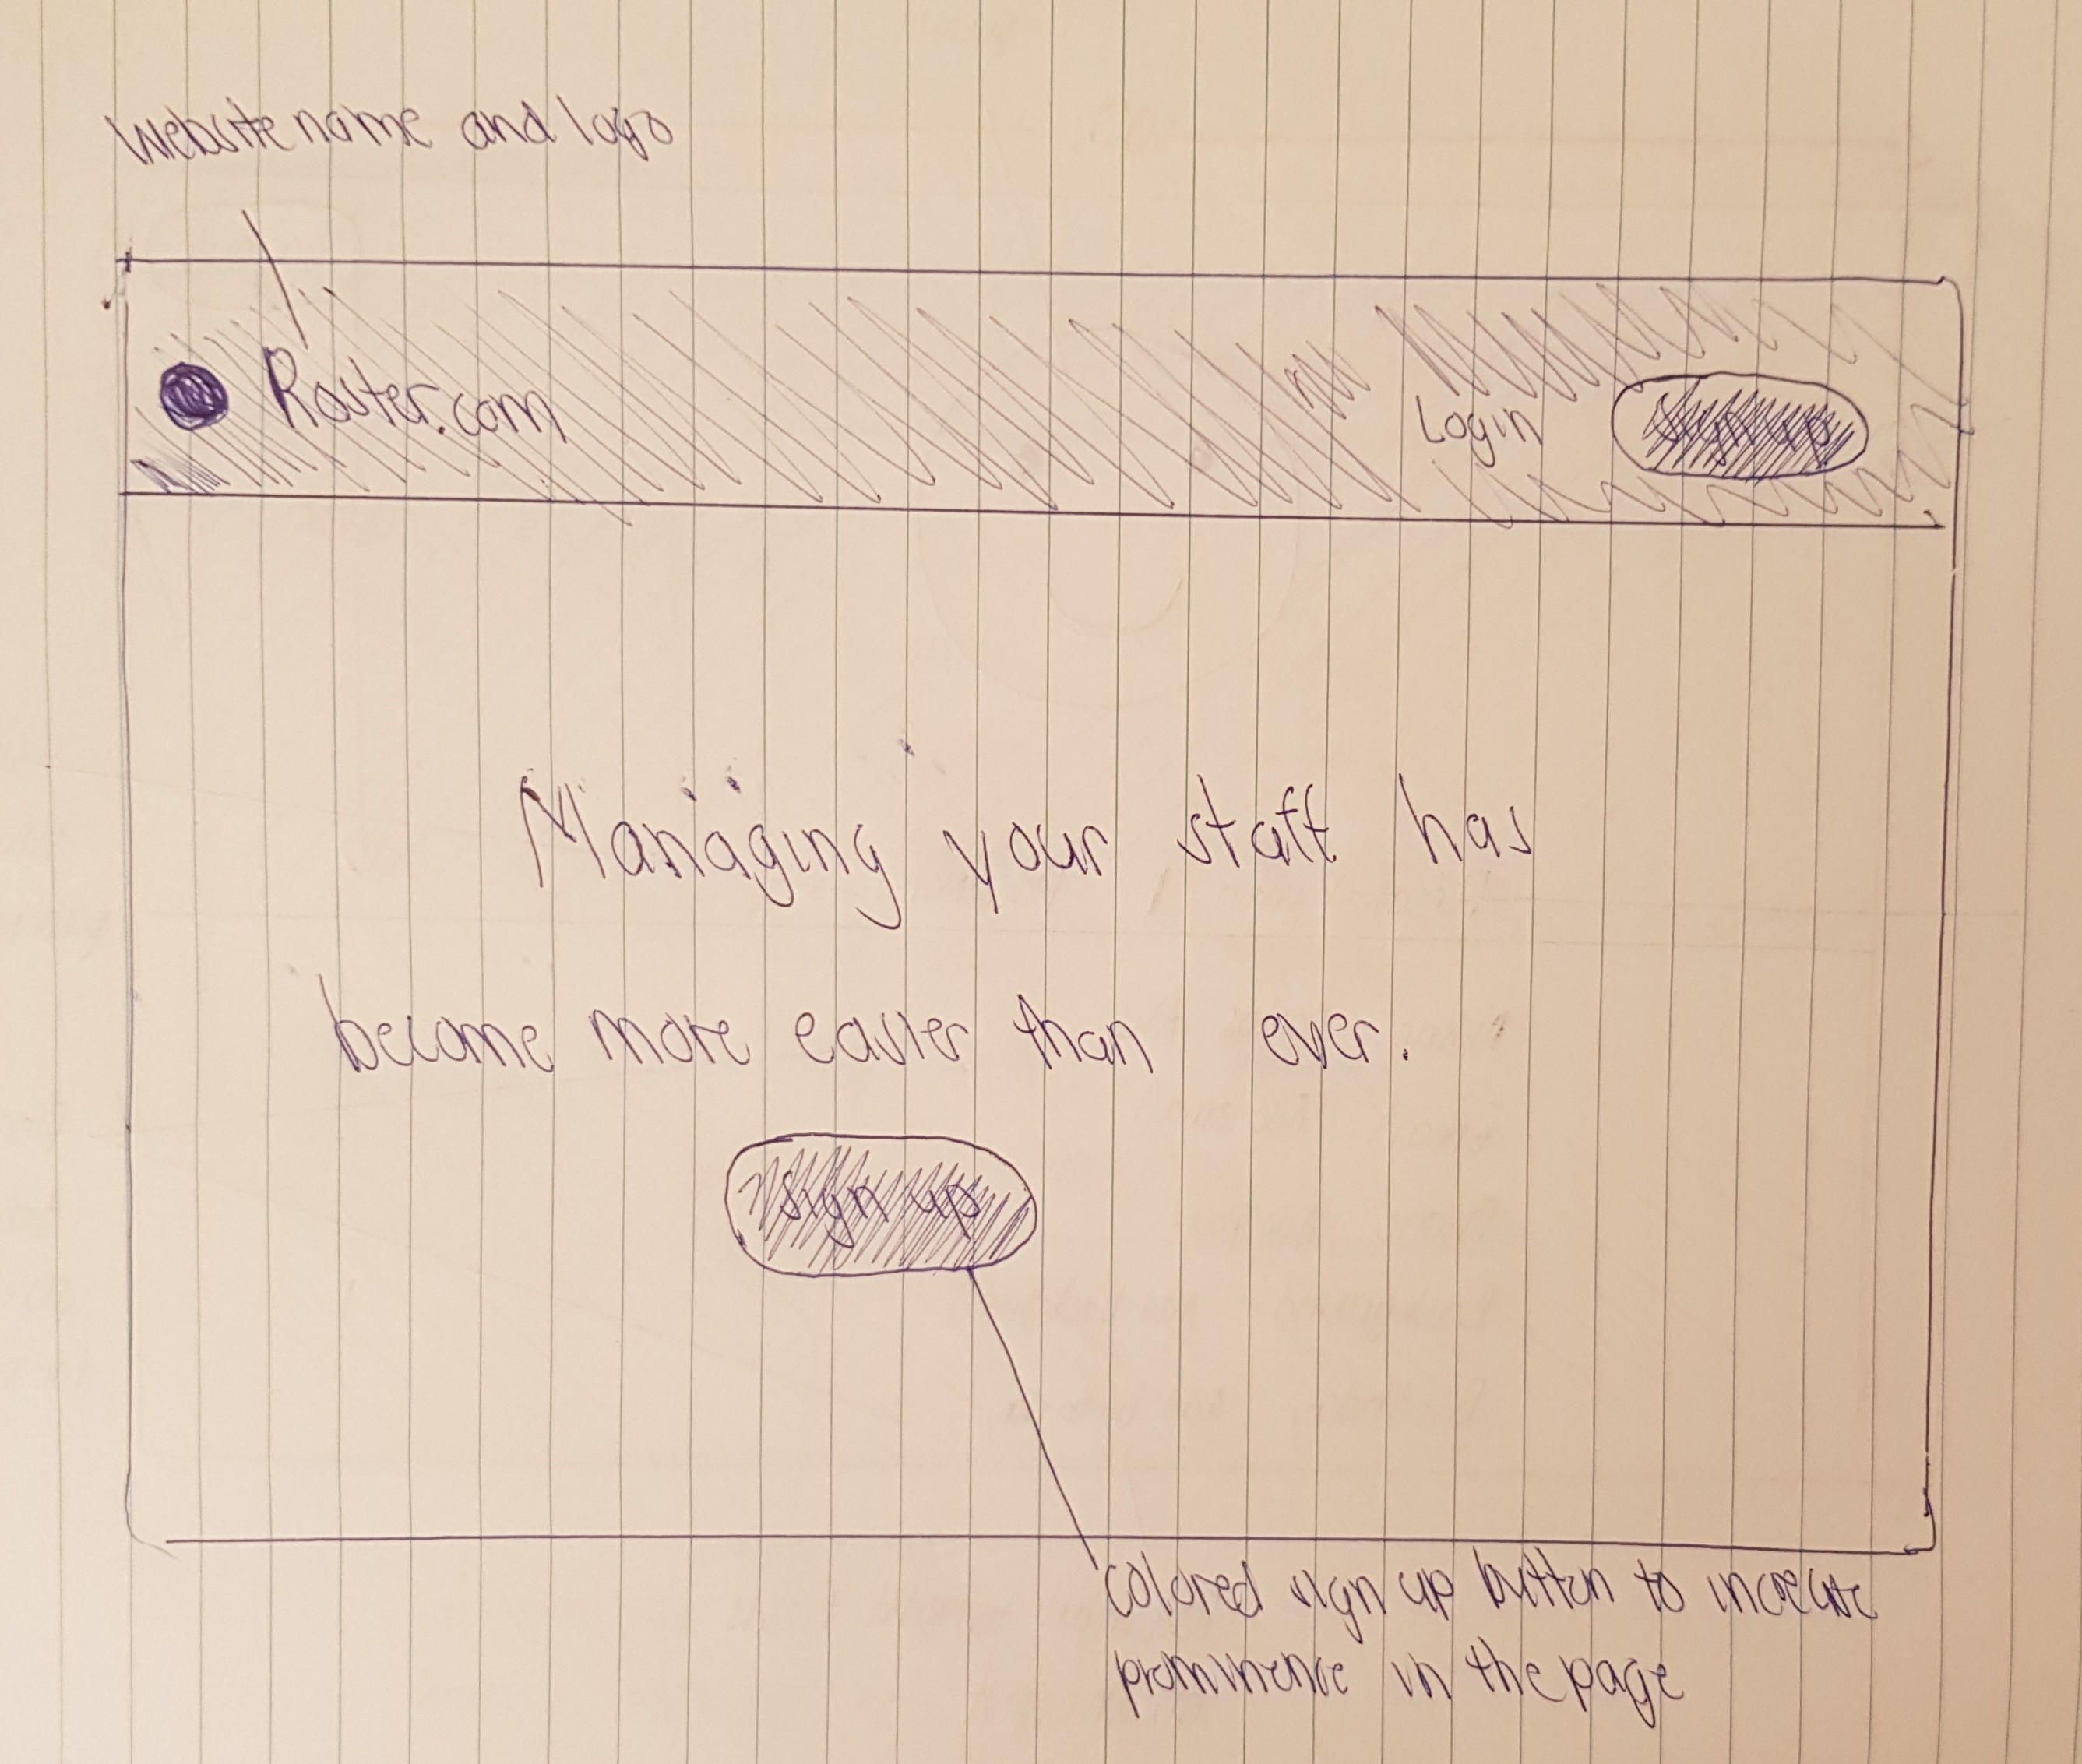 website name and logo
Roster.com
Login
sign up
Managing your staff has
become more easier than ever.
sign up
colored sign up button to increase
prominence in the page